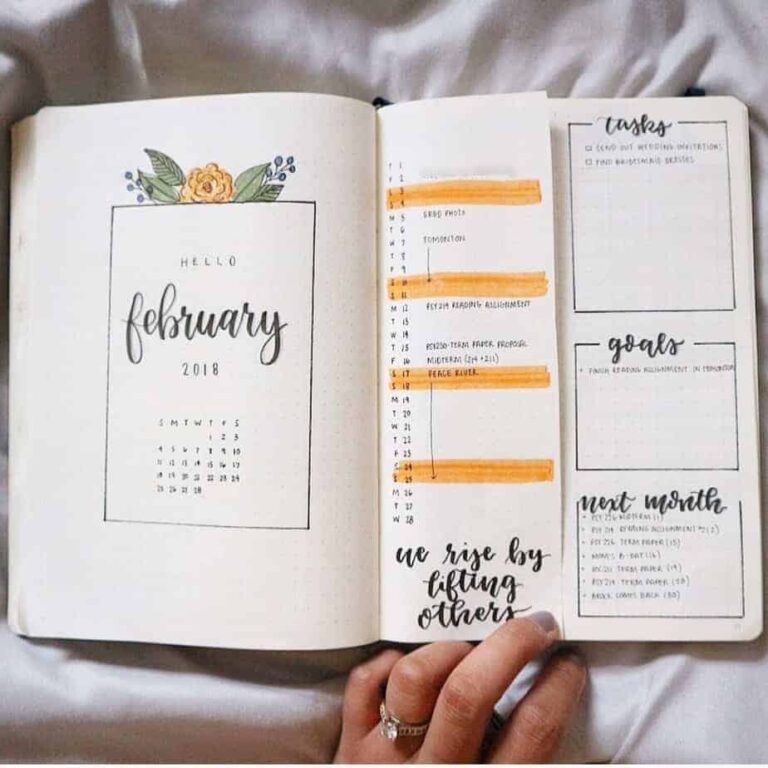 HELLO
february
2018
S M T W T F S
1 2 3
4 5 6 7 8 9 10
11 12 13 14 15 16 17
18 19 20 21 22 23 24
25 26 27 28
T 1
F 2
S 3
S 4
M 5 GRAD PHOTO
T 6
W 7 EDMONTON
T 8
F 9
S 10
S 11
M 12 PSY214 READING ASSIGNMENT
T 13
W 14
T 15 PSY230-TERM PAPER PROPOSAL
F 16 MIDTERM (214+211)
S 17 PEACE RIVER
S 18
M 19
T 20
W 21
T 22
F 23
S 24
S 25
M 26
T 27
W 28
we rise by
lifting
others
tasks
SEND OUT WEDDING INVITATIONS
FIND BRIDESMAID DRESSES
goals
FINISH READING ASSIGNMENT IN EDMONTON
next month
MIDTERM (1)
READING ASSIGNMENT
TERM PAPER (15)
MOM'S B-DAY (16)
TERM PAPER (19)
PSY214 TERM PAPER
COMES BACK (30)